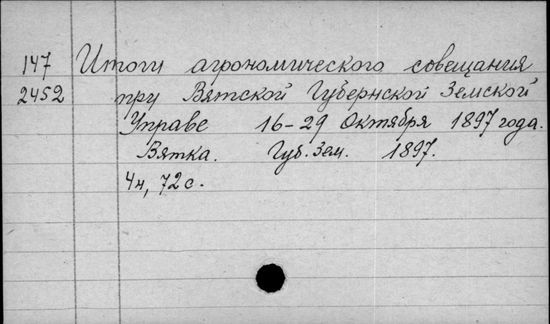 147 Итоги агрономического совещания
2452 при Вятской Губернской Земской
Управе 16-29 Октября 1897 года.
Вятка. Губ. Зем. 1897.
4н, 72 с.